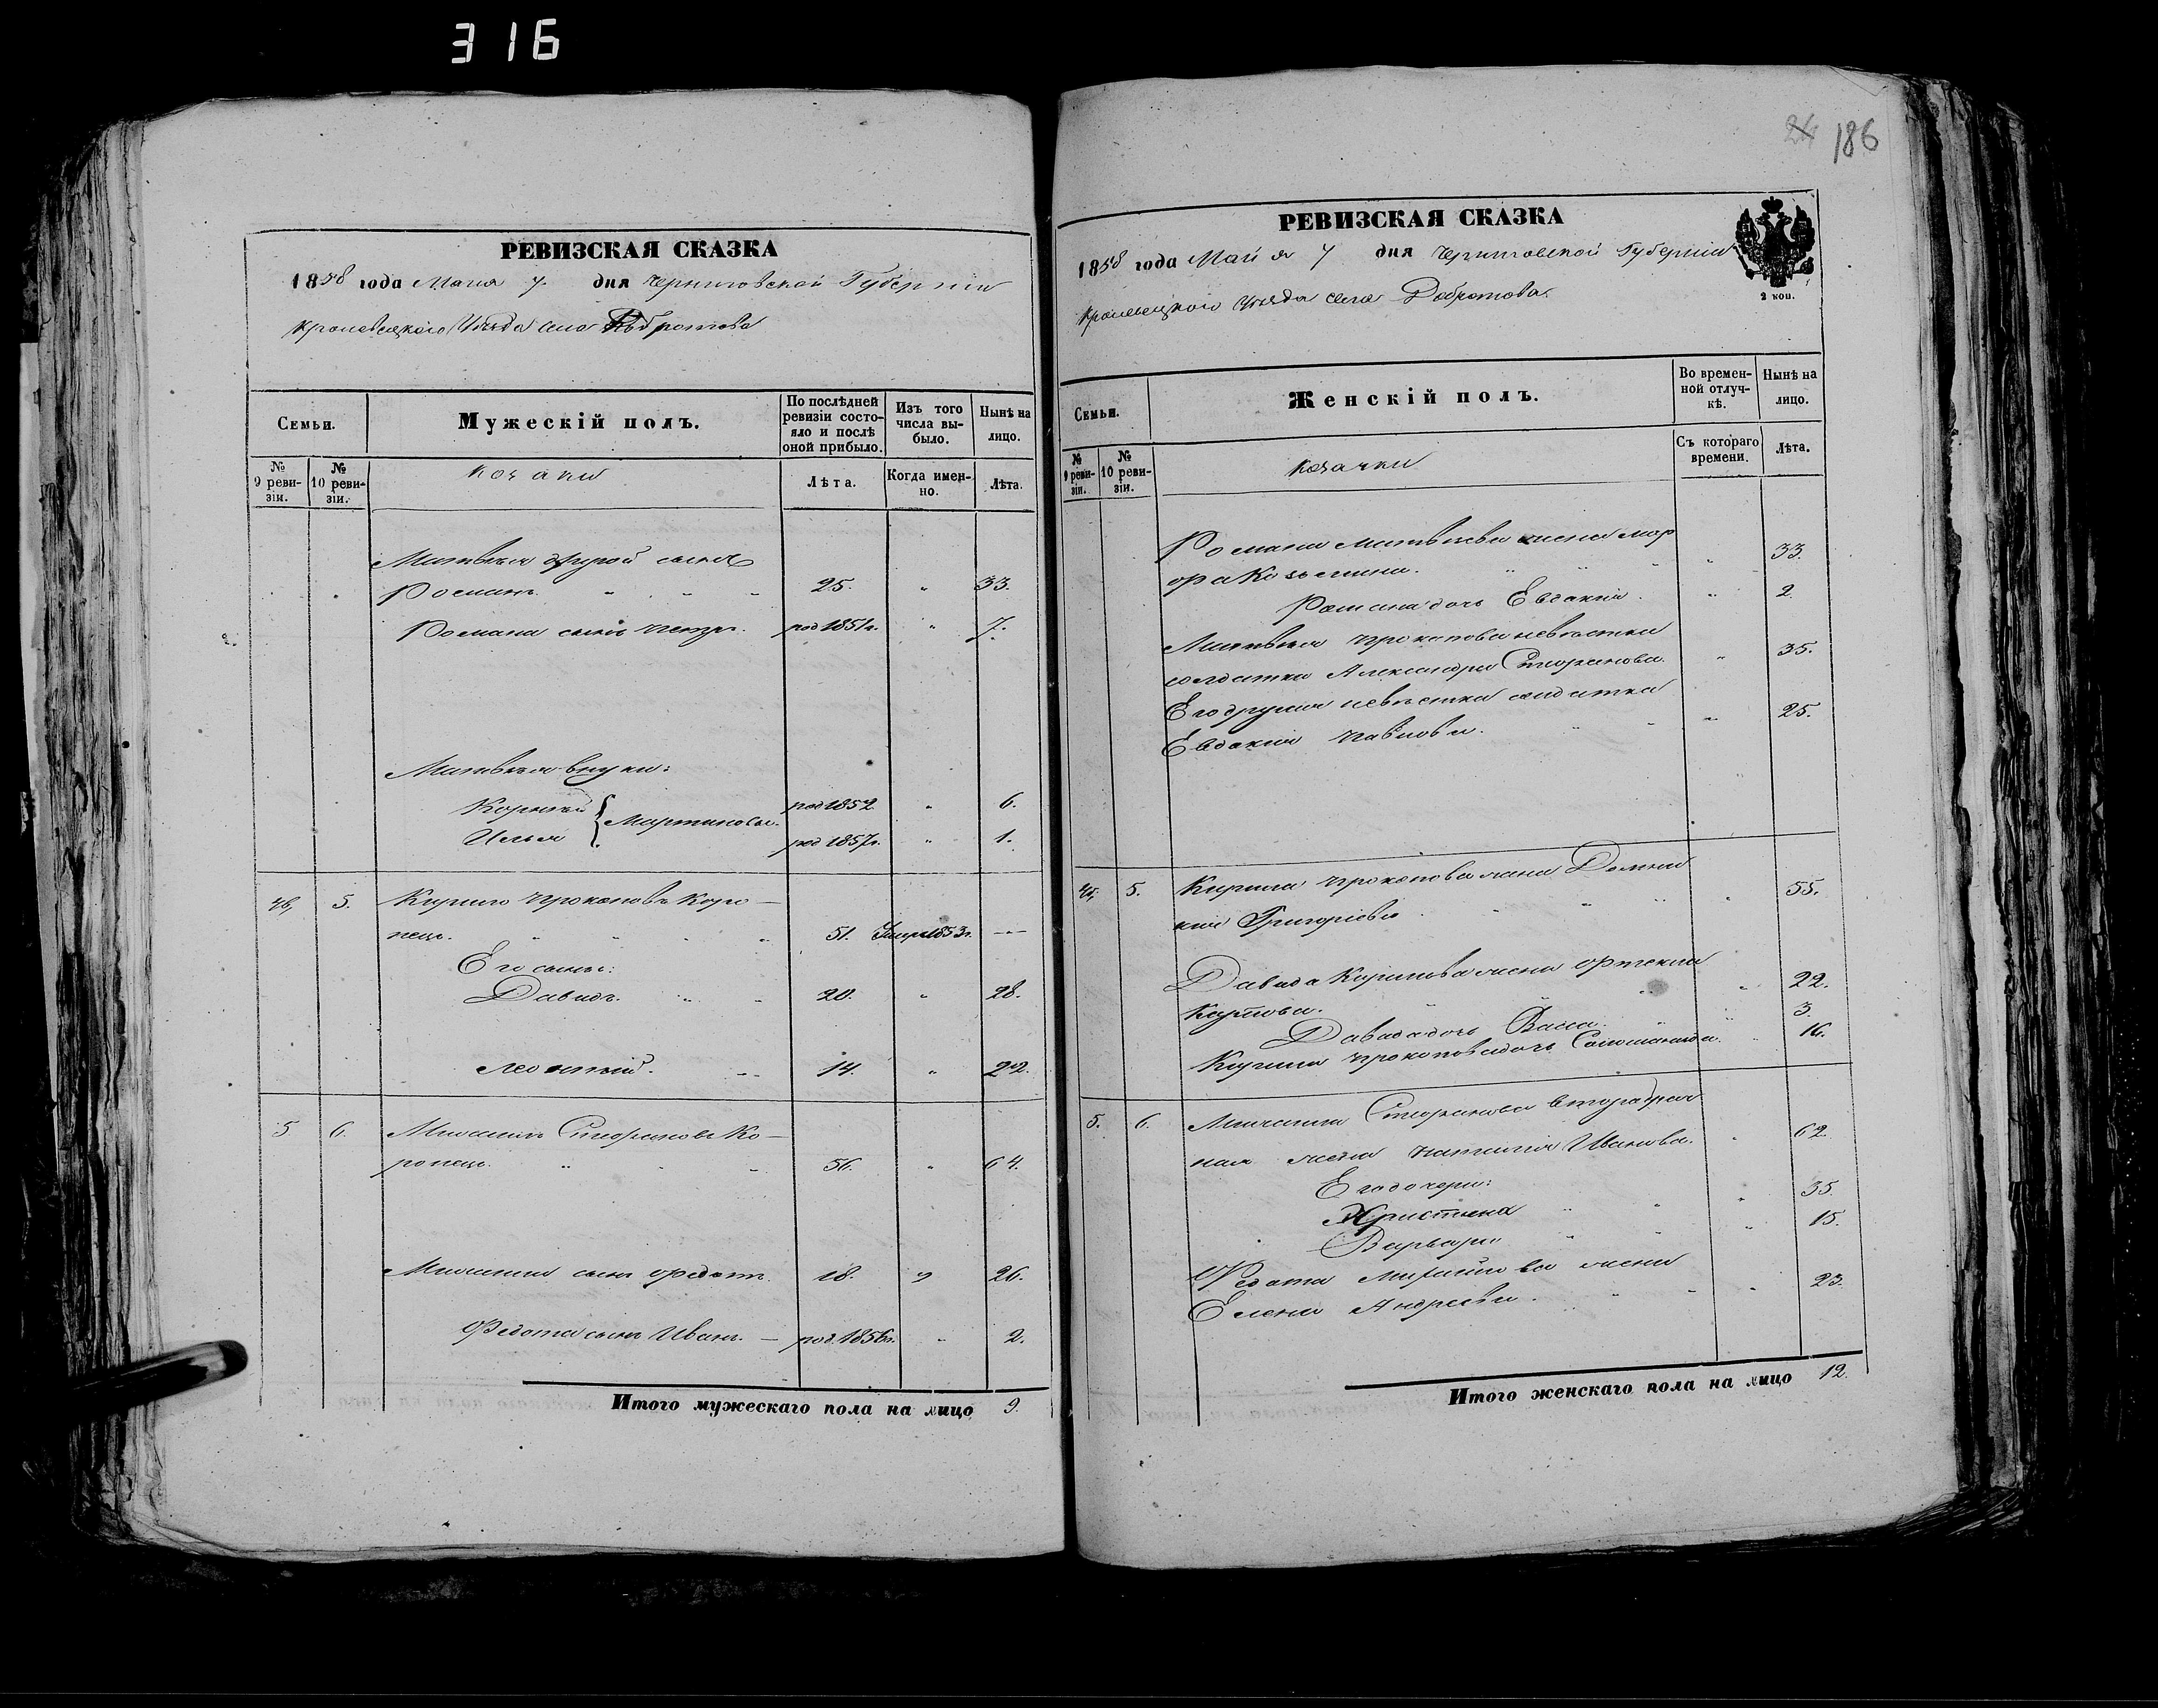 316
РЕВИЗСКАЯ СКАЗКА
1858 года Маия 7 дня Черниговской Губерніи
Кролевецкого Уѣзда села Добротова
Семьи.
Мужескій полъ.
По послѣдней ревизіи состояло и послѣ оной прибыло.
Изъ того числа выбыло.
Нынѣ на лицо.
№ 9 ревизіи.
№ 10 ревизіи.
козаки
Лѣта.
Когда именно.
Лѣта.
Матвѣя другой сынъ
Романъ. 25. " 33.
Романа сынъ Петръ. род 1851г. " 7.
Матвѣя внуки:
Корнѣй { Мартиновы. род 1852. " 6.
Илья род 1857г. " 1.
4б, 5. Кирило Прокоповъ Коро-
пецъ. 51. Умре 1853г. —
Его сыны:
Давидъ. 20. " 28.
Леонтій. 14. " 22.
5 6. Михаилъ Стефановъ Ко-
ропецъ. 56. " 64.
Михаила сынъ Федотъ. 18. " 26.
Федота сынъ Иванъ. — род. 1856г. " 2.
Итого мужескаго пола на лицо 9.
24 186
РЕВИЗСКАЯ СКАЗКА
1858 года Маия 7 дня Черниговской Губерніи
2 коп.
Кролевецкого Уѣзда села Добротова.
Семьи.
Женскій полъ.
Во временной отлучкѣ.
Нынѣ на лицо.
№ 9 ревизіи.
№ 10 ревизіи.
козачки
Съ котораго времени.
Лѣта.
Романа Матвѣева жена
Козьмина. " 33.
Романа дочь Евдокія. " 2.
Матвѣя Прокопова невѣстка
солдатка Александра Стефанова. " 35.
Его другая невѣстка солдатка
Евдокія Павлова. " 25.
4б, 5. Кирила Прокопова жена Домни-
кия Григоріева " 55.
Давида Кирилова жена
Карпова. " 22.
Давида дочь Васса. " 3.
Кирила Прокопова дочь Соломонида. " 16.
5. 6. Михаила Стефанова второбрач-
ная жена Наталія Иванова. " 62.
Его дочери:
Христина " 35.
Варвара " 15.
Федота Михайлова жена
Елена Андреева. " 23.
Итого женскаго пола на лицо 12.